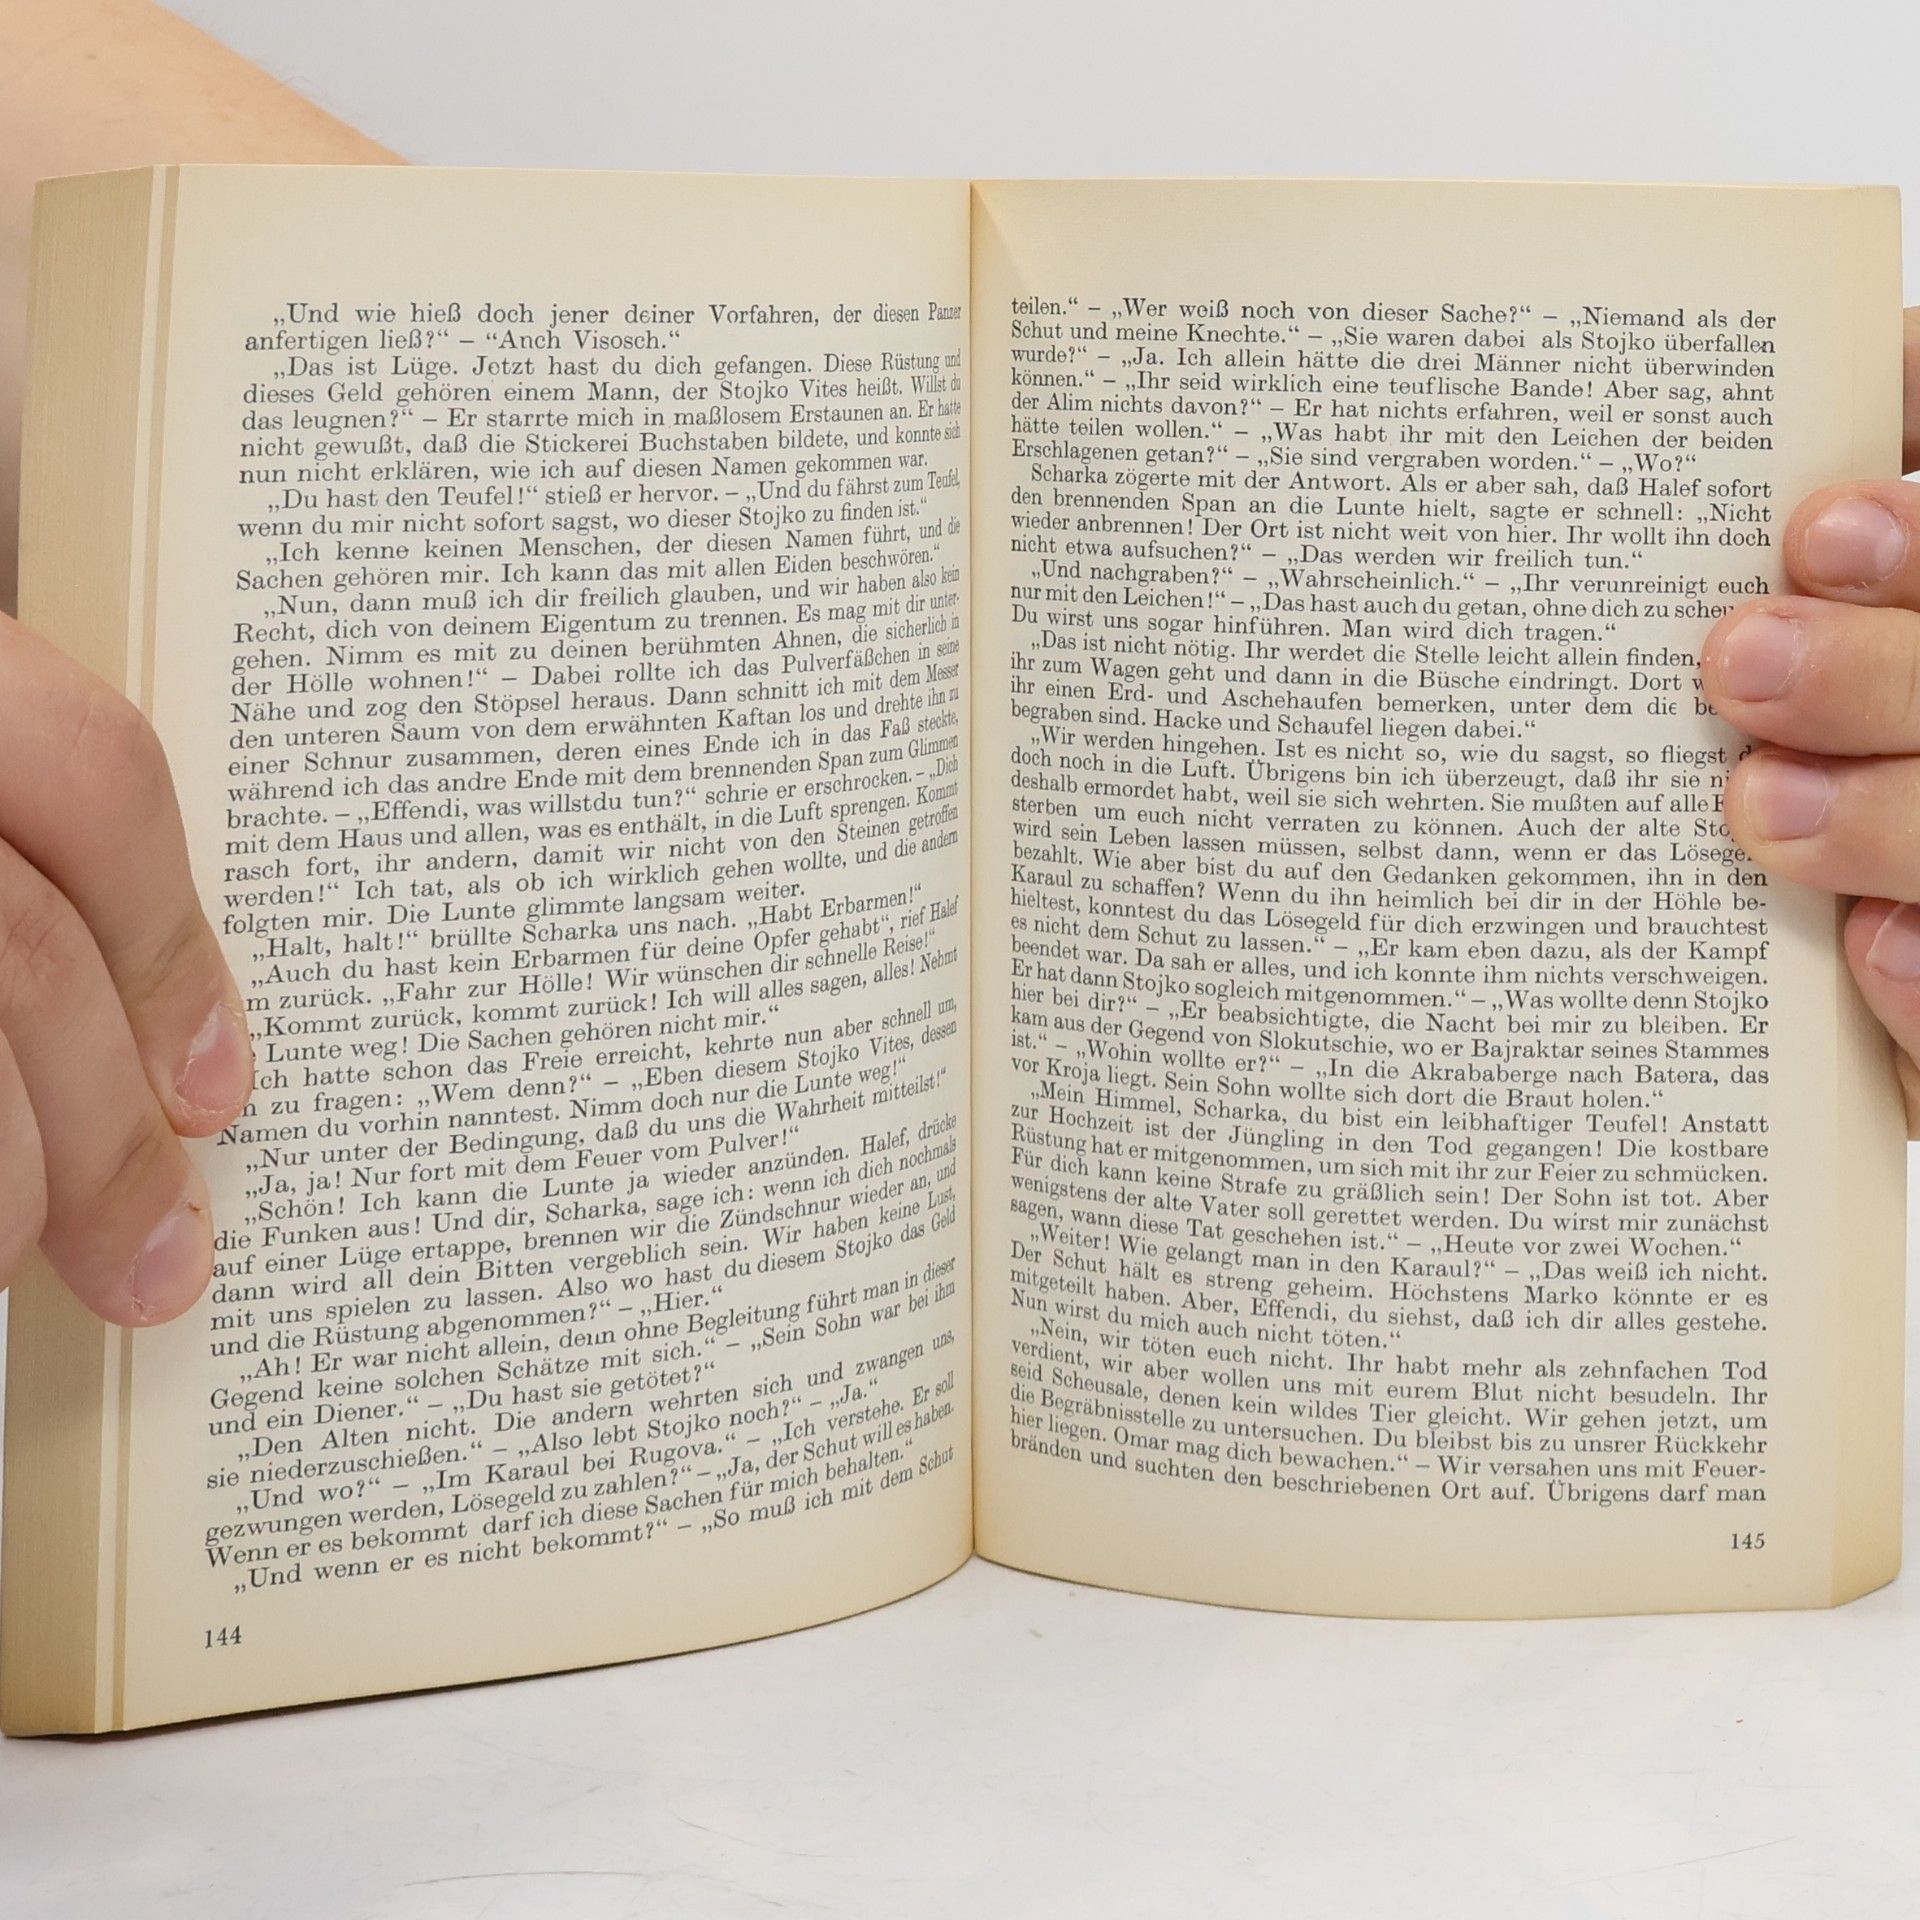 „Und wie hieß doch jener deiner Vorfahren, der diesen Panzer
anfertigen ließ?“ – “Anch Visosch.“
„Das ist Lüge. Jetzt hast du dich gefangen. Diese Rüstung und
dieses Geld gehören einem Mann, der Stojko Vites heißt. Willst du
das leugnen?“ – Er starrte mich in maßlosem Erstaunen an. Er hatte
nicht gewußt, daß die Stickerei Buchstaben bildete, und konnte sich
nun nicht erklären, wie ich auf diesen Namen gekommen war.
„Du hast den Teufel!“ stieß er hervor. – „Und du fährst zum Teufel,
wenn du mir nicht sofort sagst, wo dieser Stojko zu finden ist.“
„Ich kenne keinen Menschen, der diesen Namen führt, und die
Sachen gehören mir. Ich kann das mit allen Eiden beschwören.“
„Nun, dann muß ich dir freilich glauben, und wir haben also kein
Recht, dich von deinem Eigentum zu trennen. Es mag mit dir unter-
gehen. Nimm es mit zu deinen berühmten Ahnen, die sicherlich in
der Hölle wohnen!“ – Dabei rollte ich das Pulverfäßchen in seine
Nähe und zog den Stöpsel heraus. Dann schnitt ich mit dem Messer
den unteren Saum von dem erwähnten Kaftan los und drehte ihn zu
einer Schnur zusammen, deren eines Ende ich in das Faß steckte,
während ich das andre Ende mit dem brennenden Span zum Glimmen
brachte. – „Effendi, was willstdu tun?“ schrie er erschrocken. – „Dich
mit dem Haus und allen, was es enthält, in die Luft sprengen. Kommt
rasch fort, ihr andern, damit wir nicht von den Steinen getroffen
werden!“ Ich tat, als ob ich wirklich gehen wollte, und die andern
folgten mir. Die Lunte glimmte langsam weiter.
„Halt, halt!“ brüllte Scharka uns nach. „Habt Erbarmen!“
„Auch du hast kein Erbarmen für deine Opfer gehabt“, rief Halef
zurück. „Fahr zur Hölle! Wir wünschen dir schnelle Reise!“
„Kommt zurück, kommt zurück! Ich will alles sagen, alles! Nehmt
Lunte weg! Die Sachen gehören nicht mir.“
Ich hatte schon das Freie erreicht, kehrte nun aber schnell um,
zu fragen: „Wem denn?“ – „Eben diesem Stojko Vites, dessen
Namen du vorhin nanntest. Nimm doch nur die Lunte weg!“
„Nur unter der Bedingung, daß du uns die Wahrheit mitteilst!“
„Ja, ja! Nur fort mit dem Feuer vom Pulver!“
„Schön! Ich kann die Lunte ja wieder anzünden. Halef, drücke
die Funken aus! Und dir, Scharka, sage ich: wenn ich dich nochmals
auf einer Lüge ertappe, brennen wir die Zündschnur wieder an, und
dann wird all dein Bitten vergeblich sein. Wir haben keine Lust,
mit uns spielen zu lassen. Also wo hast du diesem Stojko das Geld
und die Rüstung abgenommen?“ – „Hier.“
„Ah! Er war nicht allein, denn ohne Begleitung führt man in dieser
Gegend keine solchen Schätze mit sich.“ – „Sein Sohn war bei ihm
und ein Diener.“ – „Du hast sie getötet?“
„Den Alten nicht. Die andern wehrten sich und zwangen uns,
sie niederzuschießen.“ – „Also lebt Stojko noch?“ – „Ja.“
„Und wo?“ – „Im Karaul bei Rugova.“ – „Ich verstehe. Er soll
gezwungen werden, Lösegeld zu zahlen?“ – „Ja, der Schut will es haben.
Wenn er es bekommt darf ich diese Sachen für mich behalten.“
„Und wenn er es nicht bekommt?“ – „So muß ich mit dem Schut
144
teilen.“ – „Wer weiß noch von dieser Sache?“ – „Niemand als der
Schut und meine Knechte.“ – „Sie waren dabei als Stojko überfallen
wurde?“ – „Ja. Ich allein hätte die drei Männer nicht überwinden
können.“ – „Ihr seid wirklich eine teuflische Bande! Aber sag, ahnt
der Alim nichts davon?“ – Er hat nichts erfahren, weil er sonst auch
hätte teilen wollen.“ – „Was habt ihr mit den Leichen der beiden
Erschlagenen getan?“ – „Sie sind vergraben worden.“ – „Wo?“
Scharka zögerte mit der Antwort. Als er aber sah, daß Halef sofort
den brennenden Span an die Lunte hielt, sagte er schnell: „Nicht
wieder anbrennen! Der Ort ist nicht weit von hier. Ihr wollt ihn doch
nicht etwa aufsuchen?“ – „Das werden wir freilich tun.“
„Und nachgraben?“ – „Wahrscheinlich.“ – „Ihr verunreinigt euch
nur mit den Leichen!“ – „Das hast auch du getan, ohne dich zu
Du wirst uns sogar hinführen. Man wird dich tragen.“
„Das ist nicht nötig. Ihr werdet die Stelle leicht allein finden,
ihr zum Wagen geht und dann in die Büsche eindringt. Dort
ihr einen Erd- und Aschehaufen bemerken, unter dem die
begraben sind. Hacke und Schaufel liegen dabei.“
„Wir werden hingehen. Ist es nicht so, wie du sagst, so fliegst
doch noch in die Luft. Übrigens bin ich überzeugt, daß ihr sie
deshalb ermordet habt, weil sie sich wehrten. Sie mußten auf alle
sterben um euch nicht verraten zu können. Auch der alte
wird sein Leben lassen müssen, selbst dann, wenn er das
bezahlt. Wie aber bist du auf den Gedanken gekommen, ihn in den
Karaul zu schaffen? Wenn du ihn heimlich bei dir in der Höhle be-
hieltest, konntest du das Lösegeld für dich erzwingen und brauchtest
es nicht dem Schut zu lassen.“ – „Er kam eben dazu, als der Kampf
beendet war. Da sah er alles, und ich konnte ihm nichts verschweigen.
Er hat dann Stojko sogleich mitgenommen.“ – „Was wollte denn Stojko
hier bei dir?“ – „Er beabsichtigte, die Nacht bei mir zu bleiben. Er
kam aus der Gegend von Slokutschie, wo er Bajraktar seines Stammes
ist.“ – „Wohin wollte er?“ – „In die Akrababerge nach Batera, das
vor Kroja liegt. Sein Sohn wollte sich dort die Braut holen.“
„Mein Himmel, Scharka, du bist ein leibhaftiger Teufel! Anstatt
zur Hochzeit ist der Jüngling in den Tod gegangen! Die kostbare
Rüstung hat er mitgenommen, um sich mit ihr zur Feier zu schmücken.
Für dich kann keine Strafe zu gräßlich sein! Der Sohn ist tot. Aber
wenigstens der alte Vater soll gerettet werden. Du wirst mir zunächst
sagen, wann diese Tat geschehen ist.“ – „Heute vor zwei Wochen.“
„Weiter! Wie gelangt man in den Karaul?“ – „Das weiß ich nicht.
Der Schut hält es streng geheim. Höchstens Marko könnte er es
mitgeteilt haben. Aber, Effendi, du siehst, daß ich dir alles gestehe.
Nun wirst du mich auch nicht töten.“
„Nein, wir töten euch nicht. Ihr habt mehr als zehnfachen Tod
verdient, wir aber wollen uns mit eurem Blut nicht besudeln. Ihr
seid Scheusale, denen kein wildes Tier gleicht. Wir gehen jetzt, um
die Begräbnisstelle zu untersuchen. Du bleibst bis zu unsrer Rückkehr
hier liegen. Omar mag dich bewachen.“ – Wir versahen uns mit Feuer-
bränden und suchten den beschriebenen Ort auf. Übrigens darf man
145